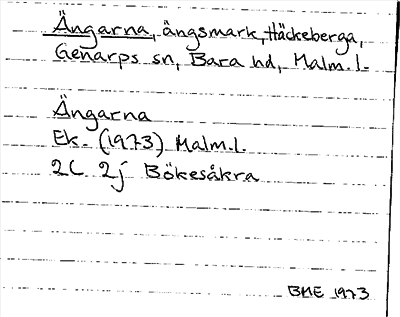 Ängarna, ängsmark, Häckeberga,
Genarps sn, Bara hd, Malm.l.
Ängarna
Ek. (1973) Malm.l.
2C 2j Bökesåkra
BME 1973